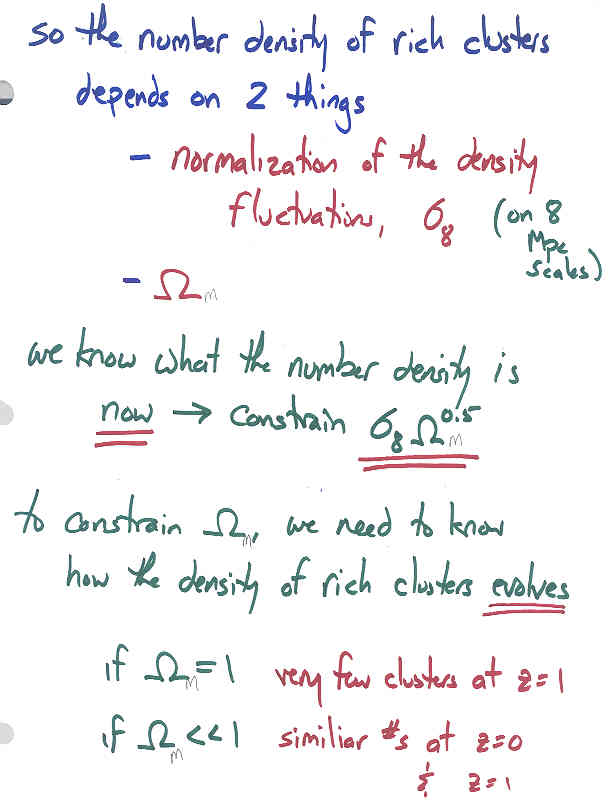 so the number density of rich clusters
depends on 2 things
- normalization of the density
fluctuations, σ₈ (on 8
Mpc
scales)
- Ωₘ
we know what the number density is
now → constrain σ₈ Ωₘ^0.5
to constrain Ωₘ, we need to know
how the density of rich clusters evolves
if Ωₘ = 1 very few clusters at z = 1
if Ωₘ << 1 similiar #s at z=0
& z=1